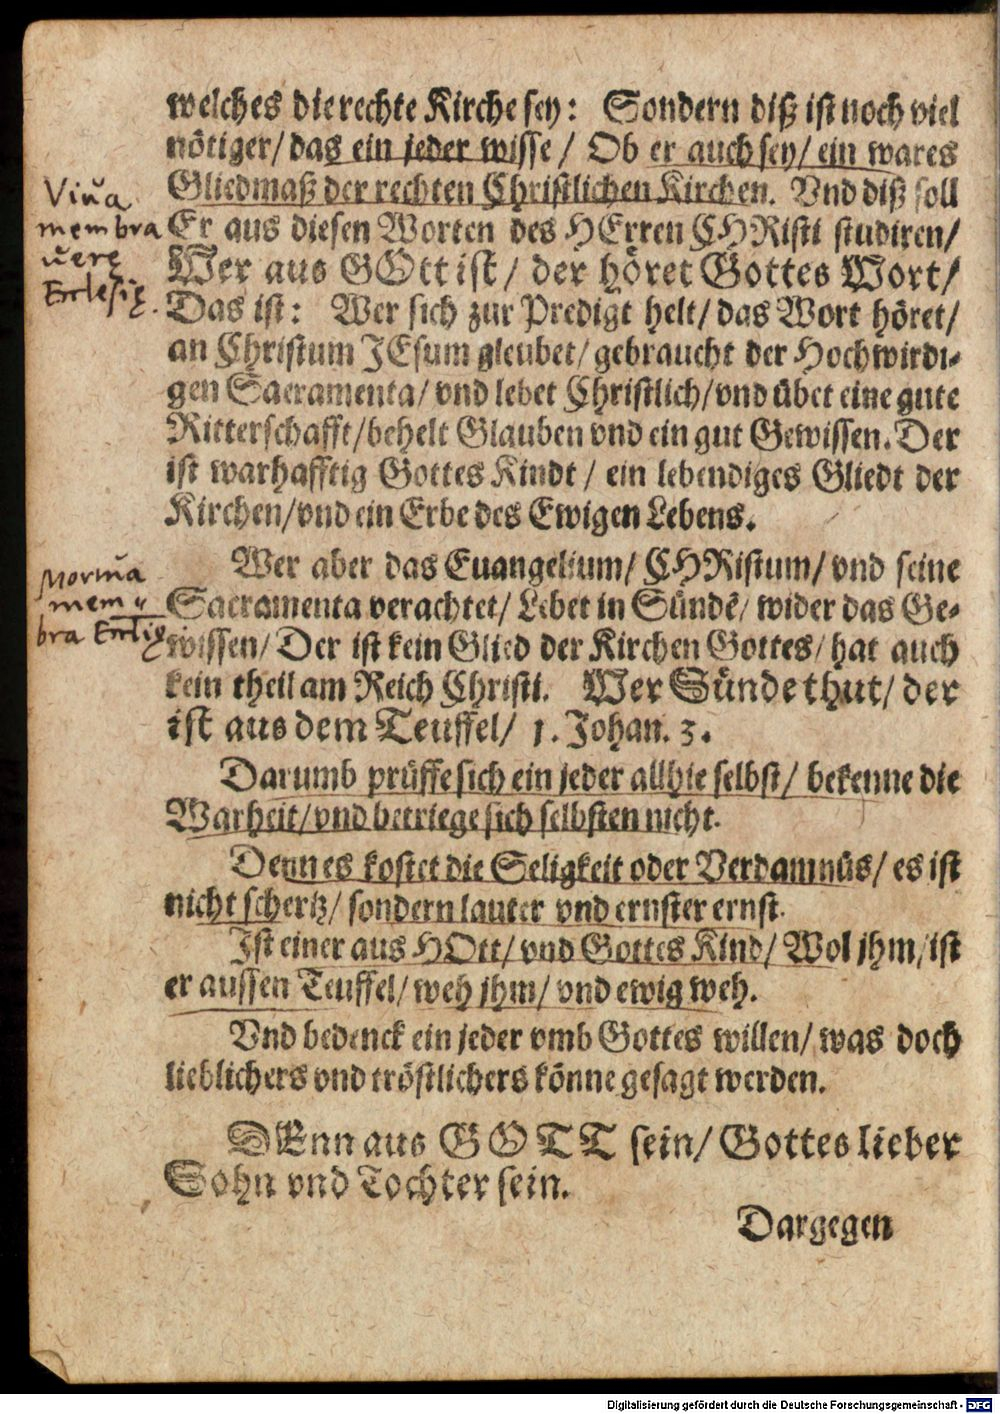 welches die rechte Kirche sey: Sondern diß ist noch viel
nötiger/ das ein jeder wisse/ Ob er auch sey/ ein wares
Gliedmaß der rechten Christlichen Kirchen. Vnd diß soll
Er aus diesen Worten des HErren CHRisti studiren/
Wer aus GOtt ist/ der höret Gottes Wort/
Das ist: Wer sich zur Predigt helt/ das Wort höret/
an Christum JEsum gleubet/ gebraucht der Hochwirdi-
gen Sacramenta/ vnd lebet Christlich/ vnd übet eine gute
Ritterschafft/ behelt Glauben vnd ein gut Gewissen. Der
ist warhafftig Gottes Kindt/ ein lebendiges Gliedt der
Kirchen/ vnd ein Erbe des Ewigen Lebens.
Viua
membra
uere
Ecclesię.
Wer aber das Euangelium/ CHRistum/ vnd seine
Sacramenta verachtet/ Lebet in Sündē/ wider das Ge-
wissen/ Der ist kein Glied der Kirchen Gottes/ hat auch
kein theil am Reich Christi. Wer Sünde thut/ der
ist aus dem Teuffel/ 1. Johan. 3.
Mortua
mem-
bra Ecclię
Darumb prüffe sich ein jeder allhie selbst/ bekenne die
Warheit/ vnd betriege sich selbsten nicht.
Denn es kostet die Seligkeit oder Verdamnüs/ es ist
nicht schertz/ sondern lauter vnd ernster ernst.
Ist einer aus GOtt/ vnd Gottes Kind/ Wol jhm/ ist
er aussen Teuffel/ weh jhm/ vnd ewig weh.
Vnd bedenck ein jeder vmb Gottes willen/ was doch
lieblichers vnd tröstlichers könne gesagt werden.
DEnn aus GOTT sein/ Gottes lieber
Sohn vnd Tochter sein.
Dargegen
Digitalisierung gefördert durch die Deutsche Forschungsgemeinschaft - DFG